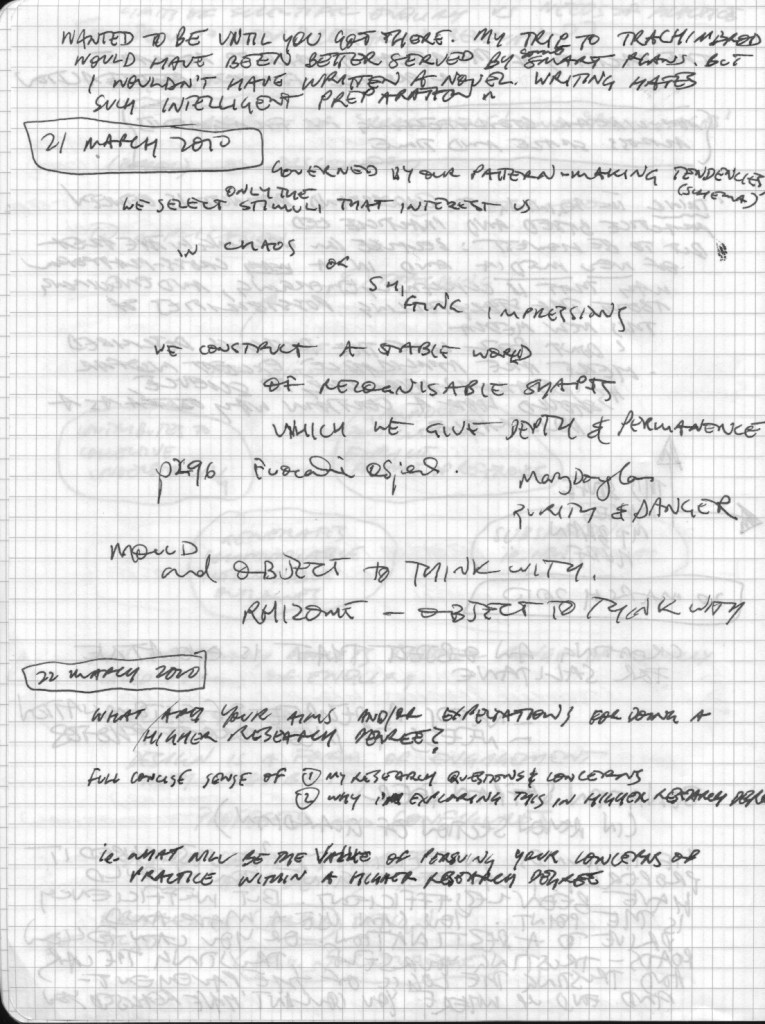 WANTED TO BE UNTIL YOU GOT THERE. MY TRIP TO
WOULD HAVE BEEN BETTER SERVED BY SOME SMART PLANS. BUT
I WOULDN'T HAVE WRITTEN A NOVEL. WRITING HATES
SUCH INTELLIGENT PREPARATION
21 MARCH 2010
GOVERNED BY OUR PATTERN-MAKING TENDENCIES
(SCHEMA)
WE SELECT ONLY THE STIMULI THAT INTEREST US
IN CHAOS
OF
SHIFTING IMPRESSIONS
WE CONSTRUCT A STABLE WORLD
OF RECOGNISABLE SHAPES
WHICH WE GIVE DEPTH & PERMANENCE
p296 Evocative Objects.
Mary Douglas
PURITY & DANGER
MOULD
and OBJECT TO THINK WITH.
RHIZOME - OBJECT TO THINK WITH
22 MARCH 2010
WHAT ARE YOUR AIMS AND/OR EXPECTATIONS FOR DOING A
HIGHER RESEARCH DEGREE?
FULL CONCISE SENSE OF 1 MY RESEARCH QUESTIONS & CONCERNS
2 WHY I'M EXPLORING THIS IN HIGHER RESEARCH DEGREE
i.e. WHAT WILL BE THE VALUE OF PURSUING YOUR CONCERNS OF
PRACTICE WITHIN A HIGHER RESEARCH DEGREE